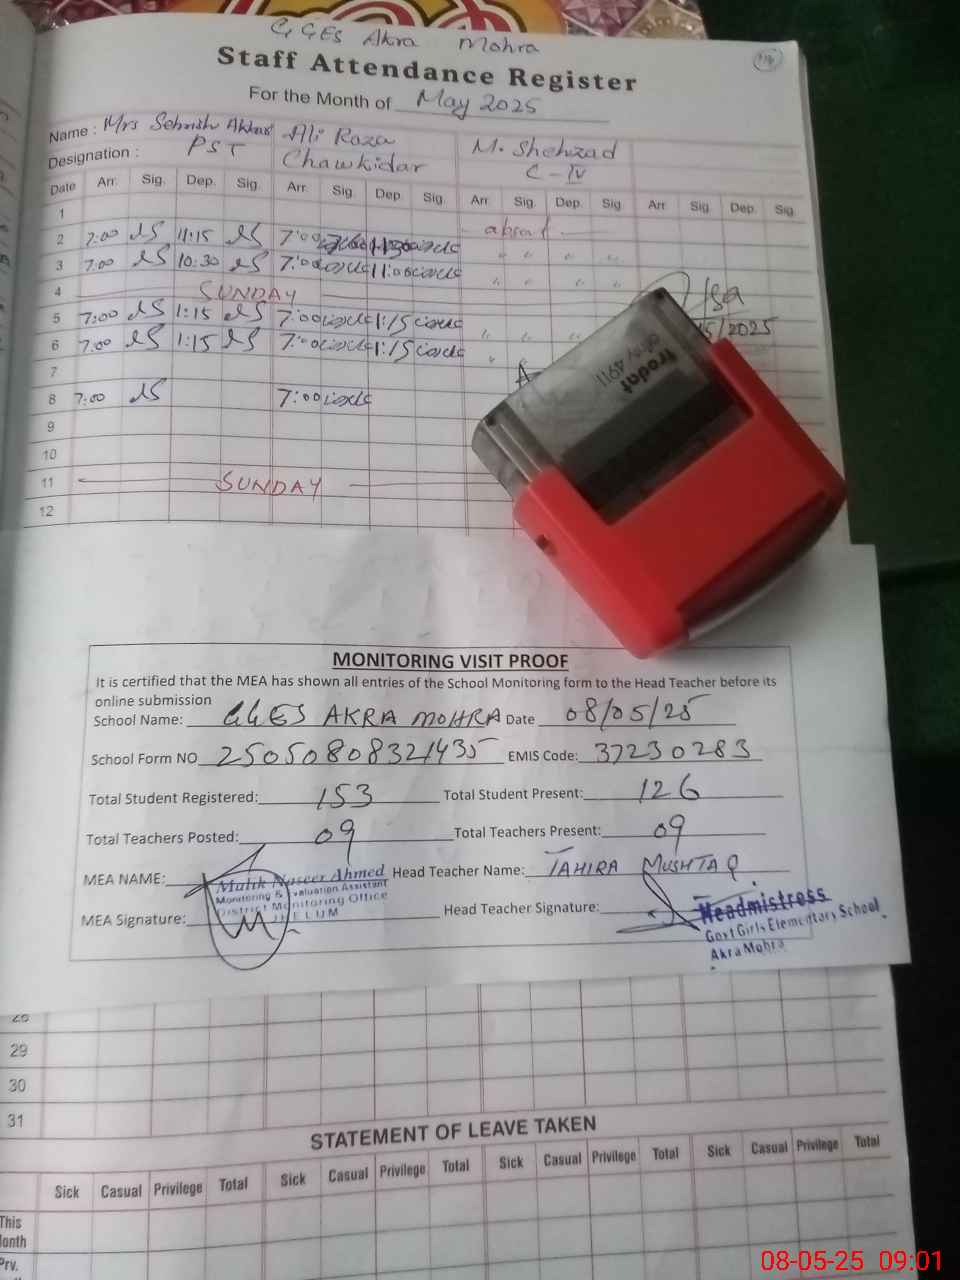 GGES Akra Mohra
Staff Attendance Register
For the Month of May 2025
Name : Mrs Sehrish Ali Raza M. Shehzad
Designation : PST Chawkidar C-IV
Date Arr. Sig. Dep. Sig. Arr. Sig. Dep. Sig. Arr. Sig. Dep. Sig. Arr. Sig. Dep. Sig.
1
2 7:00 11:15 7:00 11:30 absent
3 7:00 10:30 7:00 11:00 " " " "
4 SUNDAY " " " "
5 7:00 1:15 7:00 1:15 " " " "
6 7:00 1:15 7:00 1:15 " "
7
8 7:00 7:00
9
10
11 SUNDAY
12
5/2025
trodat
4911
MONITORING VISIT PROOF
It is certified that the MEA has shown all entries of the School Monitoring form to the Head Teacher before its
online submission
School Name: GGES AKRA MOHRA Date 08/05/25
School Form NO 25050808321435 EMIS Code: 37230283
Total Student Registered: 153 Total Student Present: 126
Total Teachers Posted: 09 Total Teachers Present: 09
MEA NAME: Malik Naseer Ahmed Head Teacher Name: TAHIRA MUSHTAQ
Monitoring & Evaluation Assistant
District Monitoring Office
JHELUM
MEA Signature: Head Teacher Signature: Headmistress
Govt Girls Elementary School
Akra Mohra
28
29
30
31
STATEMENT OF LEAVE TAKEN
Sick Casual Privilege Total Sick Casual Privilege Total Sick Casual Privilege Total Sick Casual Privilege Total
This
Month
Prv.
08-05-25 09:01